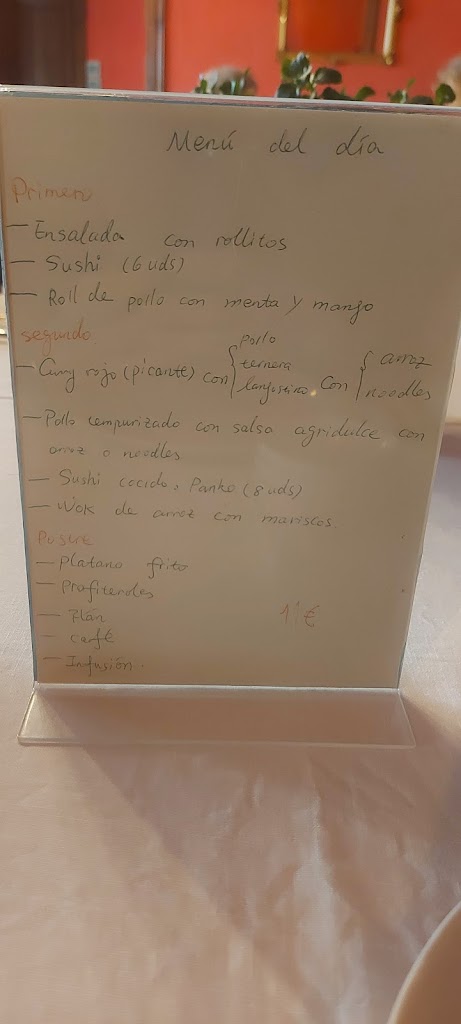 Menú del día
Primero
- Ensalada con rollitos
- Sushi (6 uds)
- Roll de pollo con menta y mango
segundo
- Curry rojo (picante) con { pollo ternera langostino con { arroz noodles
- Pollo tempurizado con salsa agridulce con
arroz o noodles
- Sushi cocido, Panko (8 uds)
- Wok de arroz con mariscos.
Postre
- Platano frito
- Profiteroles
- Flan
- café
- Infusión.
11€